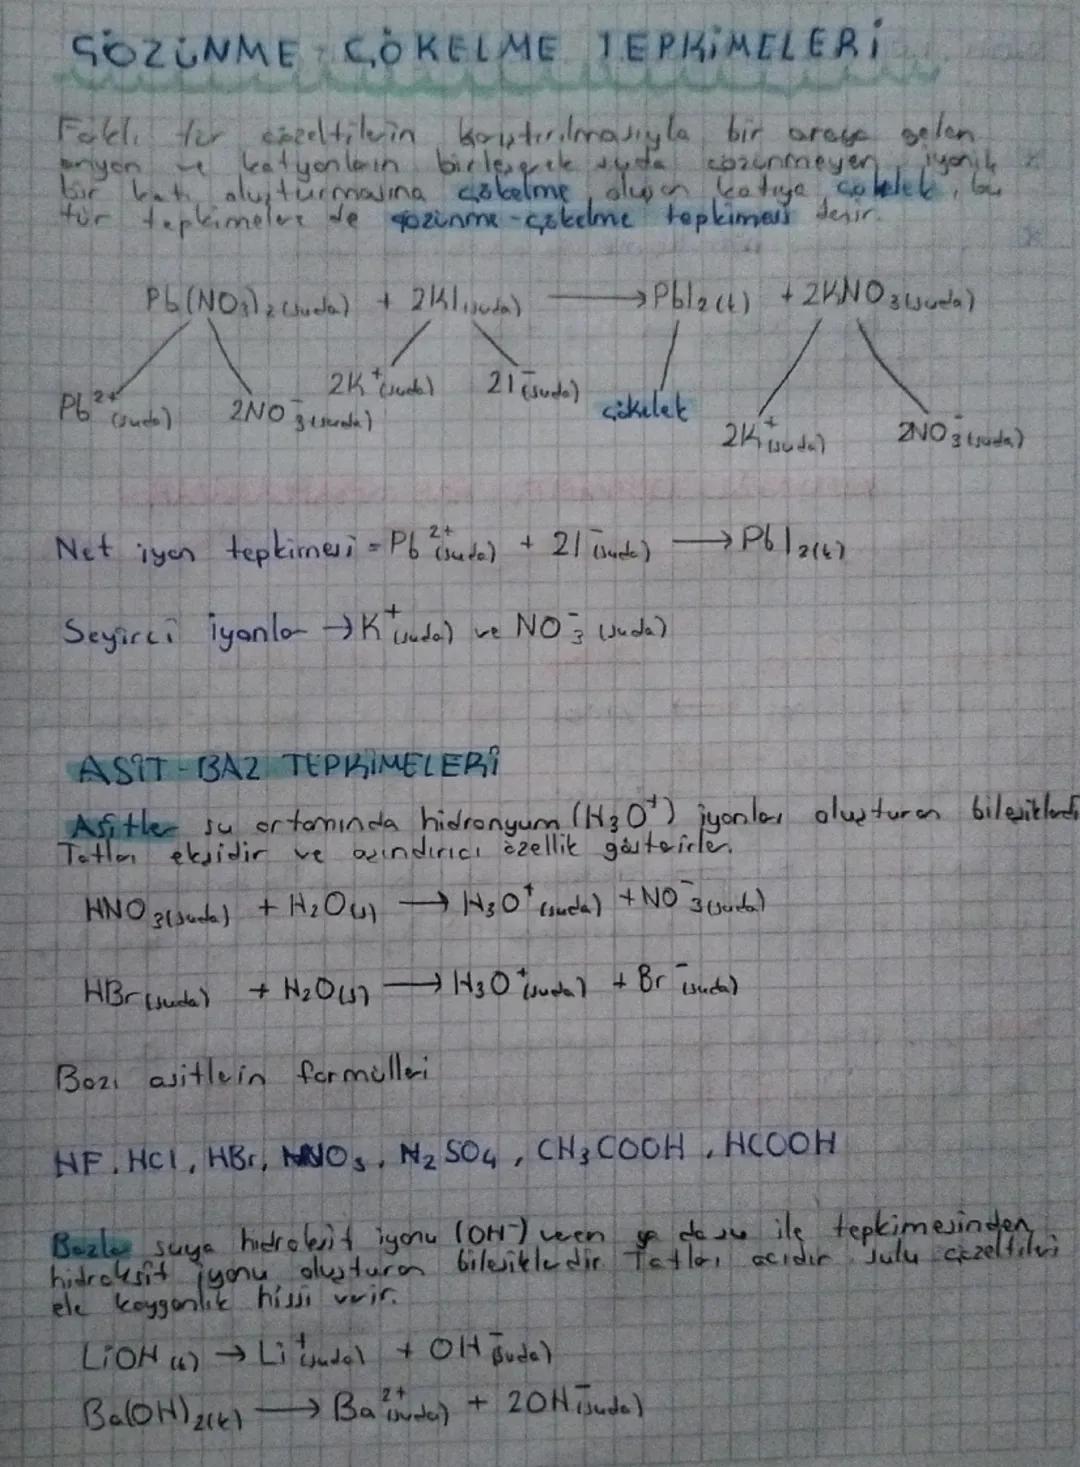 ÇÖZÜNME ÇÖKELME TEPKİMELERİ
Faklı tür çözeltilerin karıştırılmasıyla bir araya gelen
anyon ve katyonların birleşerek suda çözünmeyen iyonik
bir katı oluşturmasına çökelme, oluşan katıya çökelek, bu
tür tepkimelere de çözünme-çökelme tepkimesi denir.
Pb(NO₃)₂(suda) + 2KI(suda) → PbI₂(k) + 2KNO₃(suda)
Pb²⁺(suda) 2NO₃⁻(suda) 2K⁺(suda) 2I⁻(suda) çökelek 2K⁺(suda) 2NO₃⁻(suda)
Net iyon tepkimesi = Pb²⁺(suda) + 2I⁻(suda) → PbI₂(k)
Seyirci iyonlar → K⁺(suda) ve NO₃⁻(suda)
ASİT-BAZ TEPKİMELERİ
Asitler su ortamında hidronyum (H₃O⁺) iyonları oluşturan bileşiklerdi
Tatları ekşidir ve aşındırıcı özellik gösterirler.
HNO₃(suda) + H₂O(s) → H₃O⁺(suda) + NO₃⁻(suda)
HBr(suda) + H₂O(s) → H₃O⁺(suda) + Br⁻(suda)
Bazı asitlerin formülleri
HF, HCl, HBr, HNO₃, H₂SO₄, CH₃COOH, HCOOH
Bazlar suya hidroksit iyonu (OH⁻) veren ya da su ile tepkimesinden
hidroksit iyonu oluşturan bileşiklerdir. Tatları acıdır. Sulu çözeltileri
ele kayganlık hissi verir.
LiOH(k) → Li⁺(suda) + OH⁻(suda)
Ba(OH)₂(k) → Ba²⁺(suda) + 2OH⁻(suda)